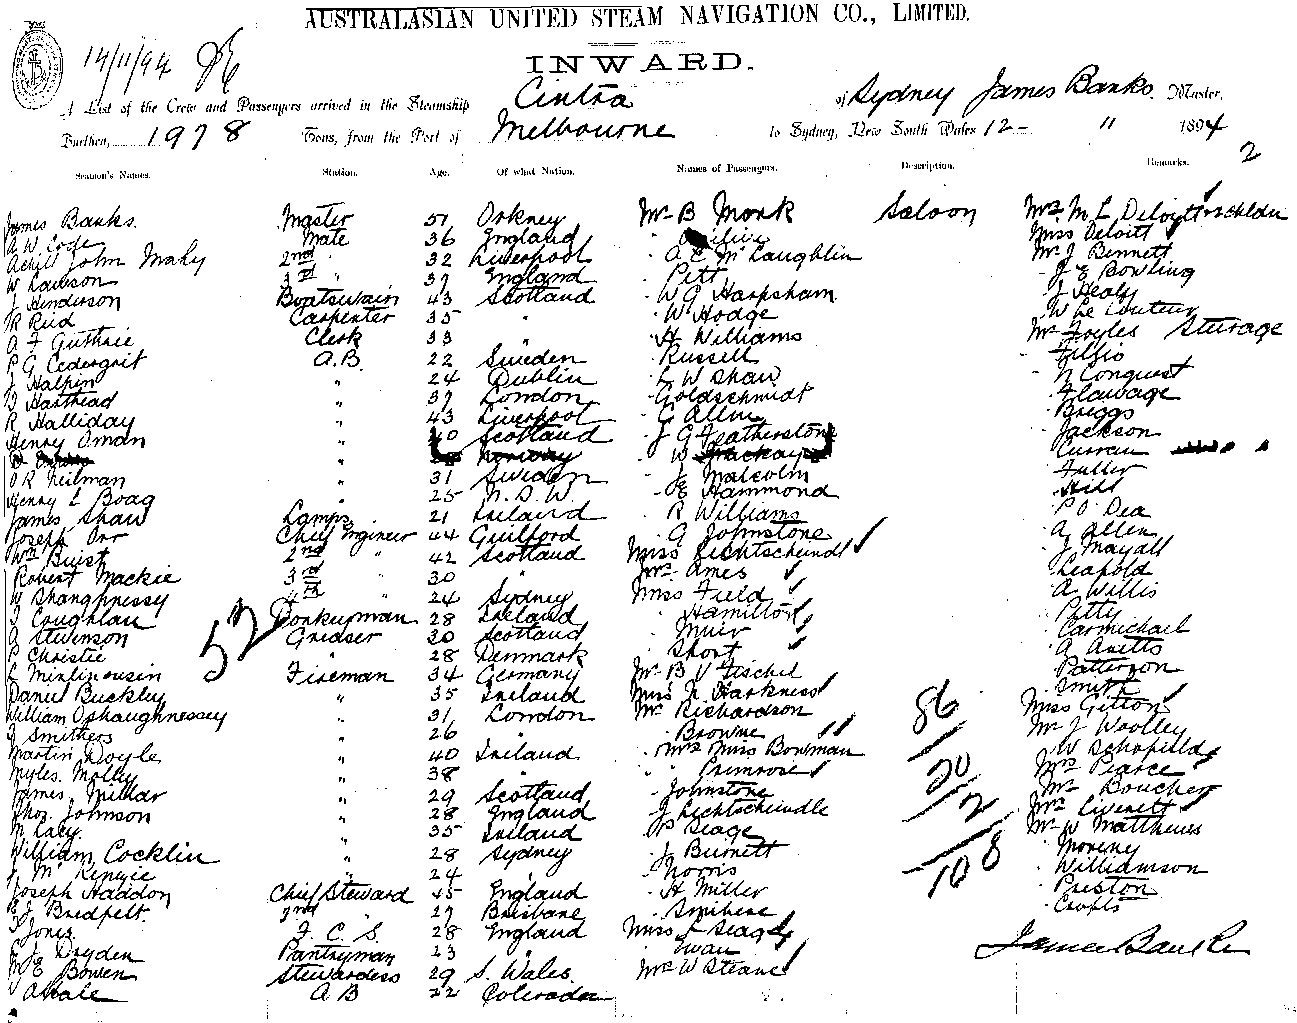 AUSTRALASIAN UNITED STEAM NAVIGATION CO., LIMITED.
14/11/94
INWARD.
A List of the Crew and Passengers arrived in the Steamship Cintra of Sydney James Banks. Master,
Burthen, 1978 Tons, from the Port of Melbourne to Sydney, New South Wales 12 - " 1894
2
Seamen's Names. Station. Age. Of what Nation. Names of Passengers. Description. Remarks.
James Banks. Master 51 Orkney Mr B Monk Saloon Mrs M L Deloitte
Mate 36 England Miss Deloitt
Achill John Mahy 2nd " 32 Liverpool " A C McLaughlin Mr J Bennett
W Lawson 3rd " 37 England " Pitt " J E Bowling
J Henderson Boatswain 43 Scotland " W G Harpsham " J Healy
R Reid Carpenter 35 " " W Hodge " W Le Couteur
A F Guthrie Clerk 33 " " H Williams Mr Foyles Sturage
P G Cedergrit A.B. 22 Sweden " Russell
J Halpin " 24 Dublin " L W Shaw " N Conquest
B Harthead " 37 London " Goldschmidt
R Halliday " 43 Liverpool " C Allen " Briggs
Henry Oman " 40 Scotland " J G Featherstone " Jackson
" Norway " W Mackay " Curran
O R Neilman " 31 Sweden " J Malcolm " Fuller
Henry L Boag " 25 N.S.W. " E Hammond " Hill
James Shaw Lamps 21 Ireland " R Williams " P O Dea
Joseph Orr Chief Engineer 44 Guilford " G Johnstone " A Allen
Wm Buist 2nd " 42 Scotland Miss Lichtscheindl " J Mayall
Robert Mackie 3rd " 30 " Mrs Ames " Leapold
W Shanghnessy 4th 24 Sydney Miss Field " A Willis
J Coughlan Donkeyman 28 Ireland " Hamilton " Petty
A Stevenson Greaser 30 Scotland " Muir " Carmichael
P Christie " 28 Denmark " Short
Fireman 34 Germany Mr B V Fischel " Patterson
Daniel Buckley " 35 Ireland Miss N Harkness " Smith
William Oshaughnessey " 31 London Mr Richardson Miss Gitton
J Smithers " 26 " " Browne Mr J Woolley
Martin Doyle " 40 Ireland " Mrs Miss Bowman " W Schofield
Myles Molly " 38 " " " Primrose Mrs Pearce
James Millar " 29 Scotland " Johnstone Mr Boucher
Thos. Johnson " 28 England " J Lichtscheindle
M Lacy " 35 Ireland " P Seage Mr W Matthews
William Cocklin " 28 Sydney " J Burnett " Moreny
J McKenzie " 24 " " Norris " Williamson
Joseph Haddon Chief Steward 45 England " H Miller " Preston
2nd " 27 Brisbane " Crofts
Jones F. C. S. 28 England Miss L Seage
E J Dryden Pantryman 23 " " Ewan
M E Bowen Stewardess 29 S. Wales Mrs W Steane
A B 22 Colorado
52
86
20
2
108
James Banks